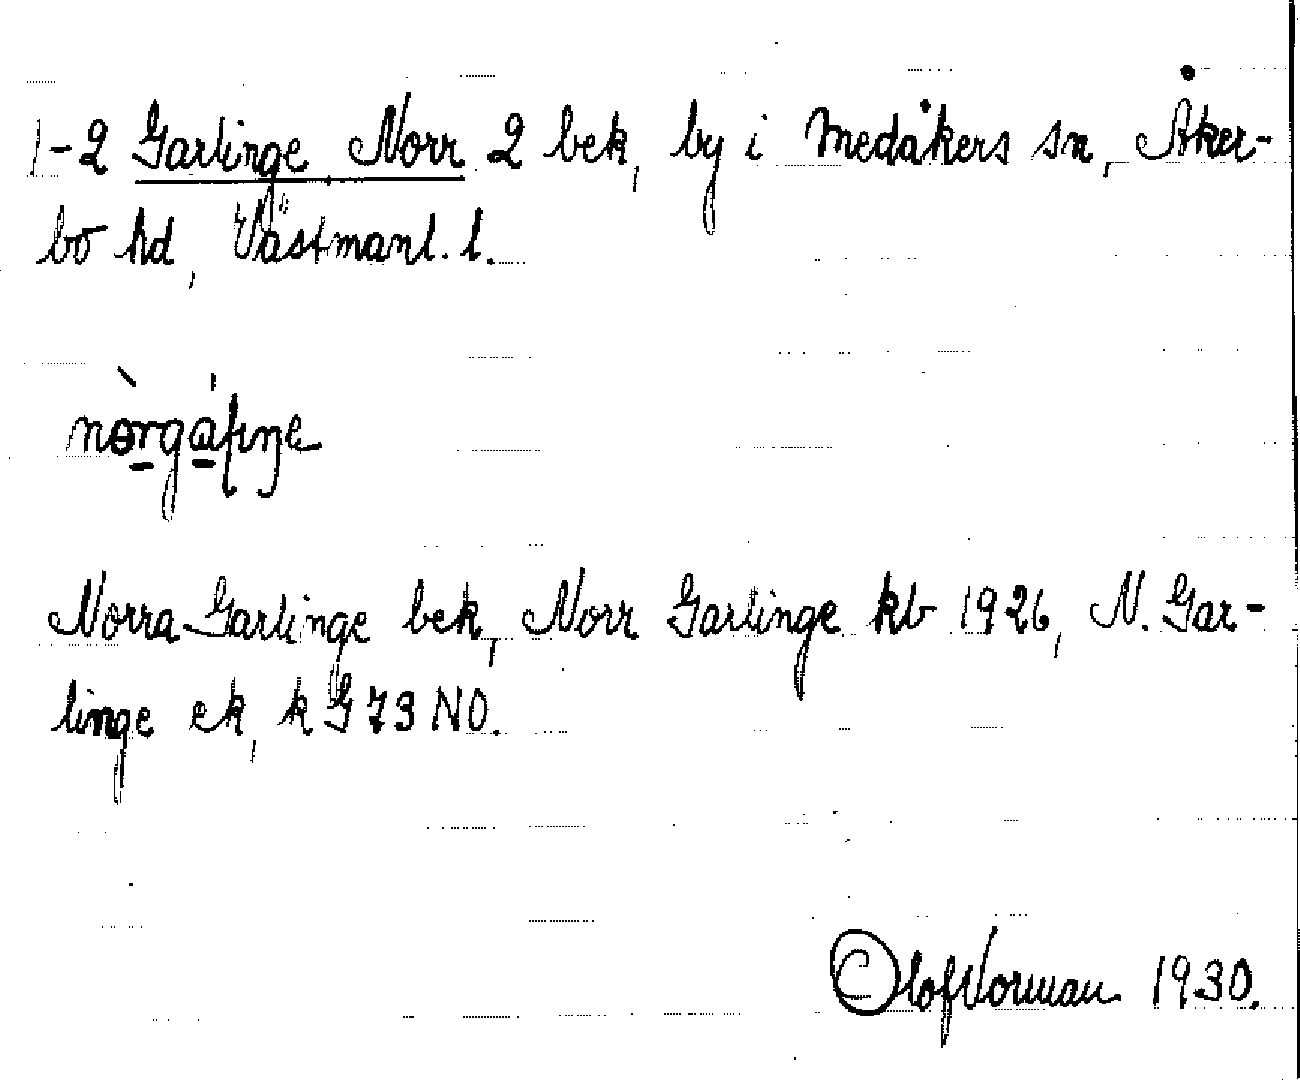 1-2 Garlinge, Norr 2 bek, by i Medåkers sn, Åker-
bo hd, Västmanl. l.
Norra Garlinge bek, Norr Garlinge kb 1926, N. Gar-
linge ek, k G 73 NO.
Olof Norman 1930.